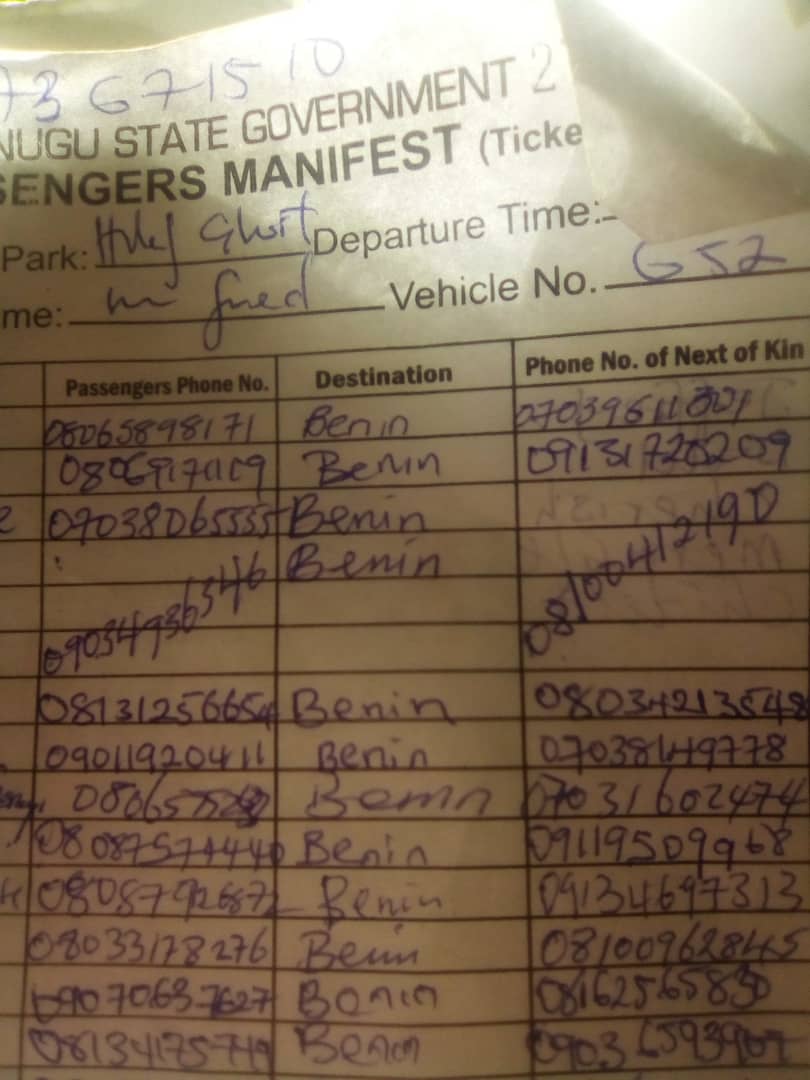 73 671510
NUGU STATE GOVERNMENT 2
SENGERS MANIFEST (Ticke
Park: Holy Ghost Departure Time:-
me: Mr fred Vehicle No. G52
Passengers Phone No. Destination Phone No. of Next of Kin
08065898171 Benin 07039611301
Benin 09131720209
e 07038065555 Benin
Benin
09034936346 08100412190
08131256654 Benin 08034213548
09011920411 Benin 07038149778
Benin 07031602474
08087574440 Benin 09119509968
08087926872 Benin 09134697313
08033178276 Benin 08100962845
09070637627 Benin 08162565830
08134175719 Benin 09036593907